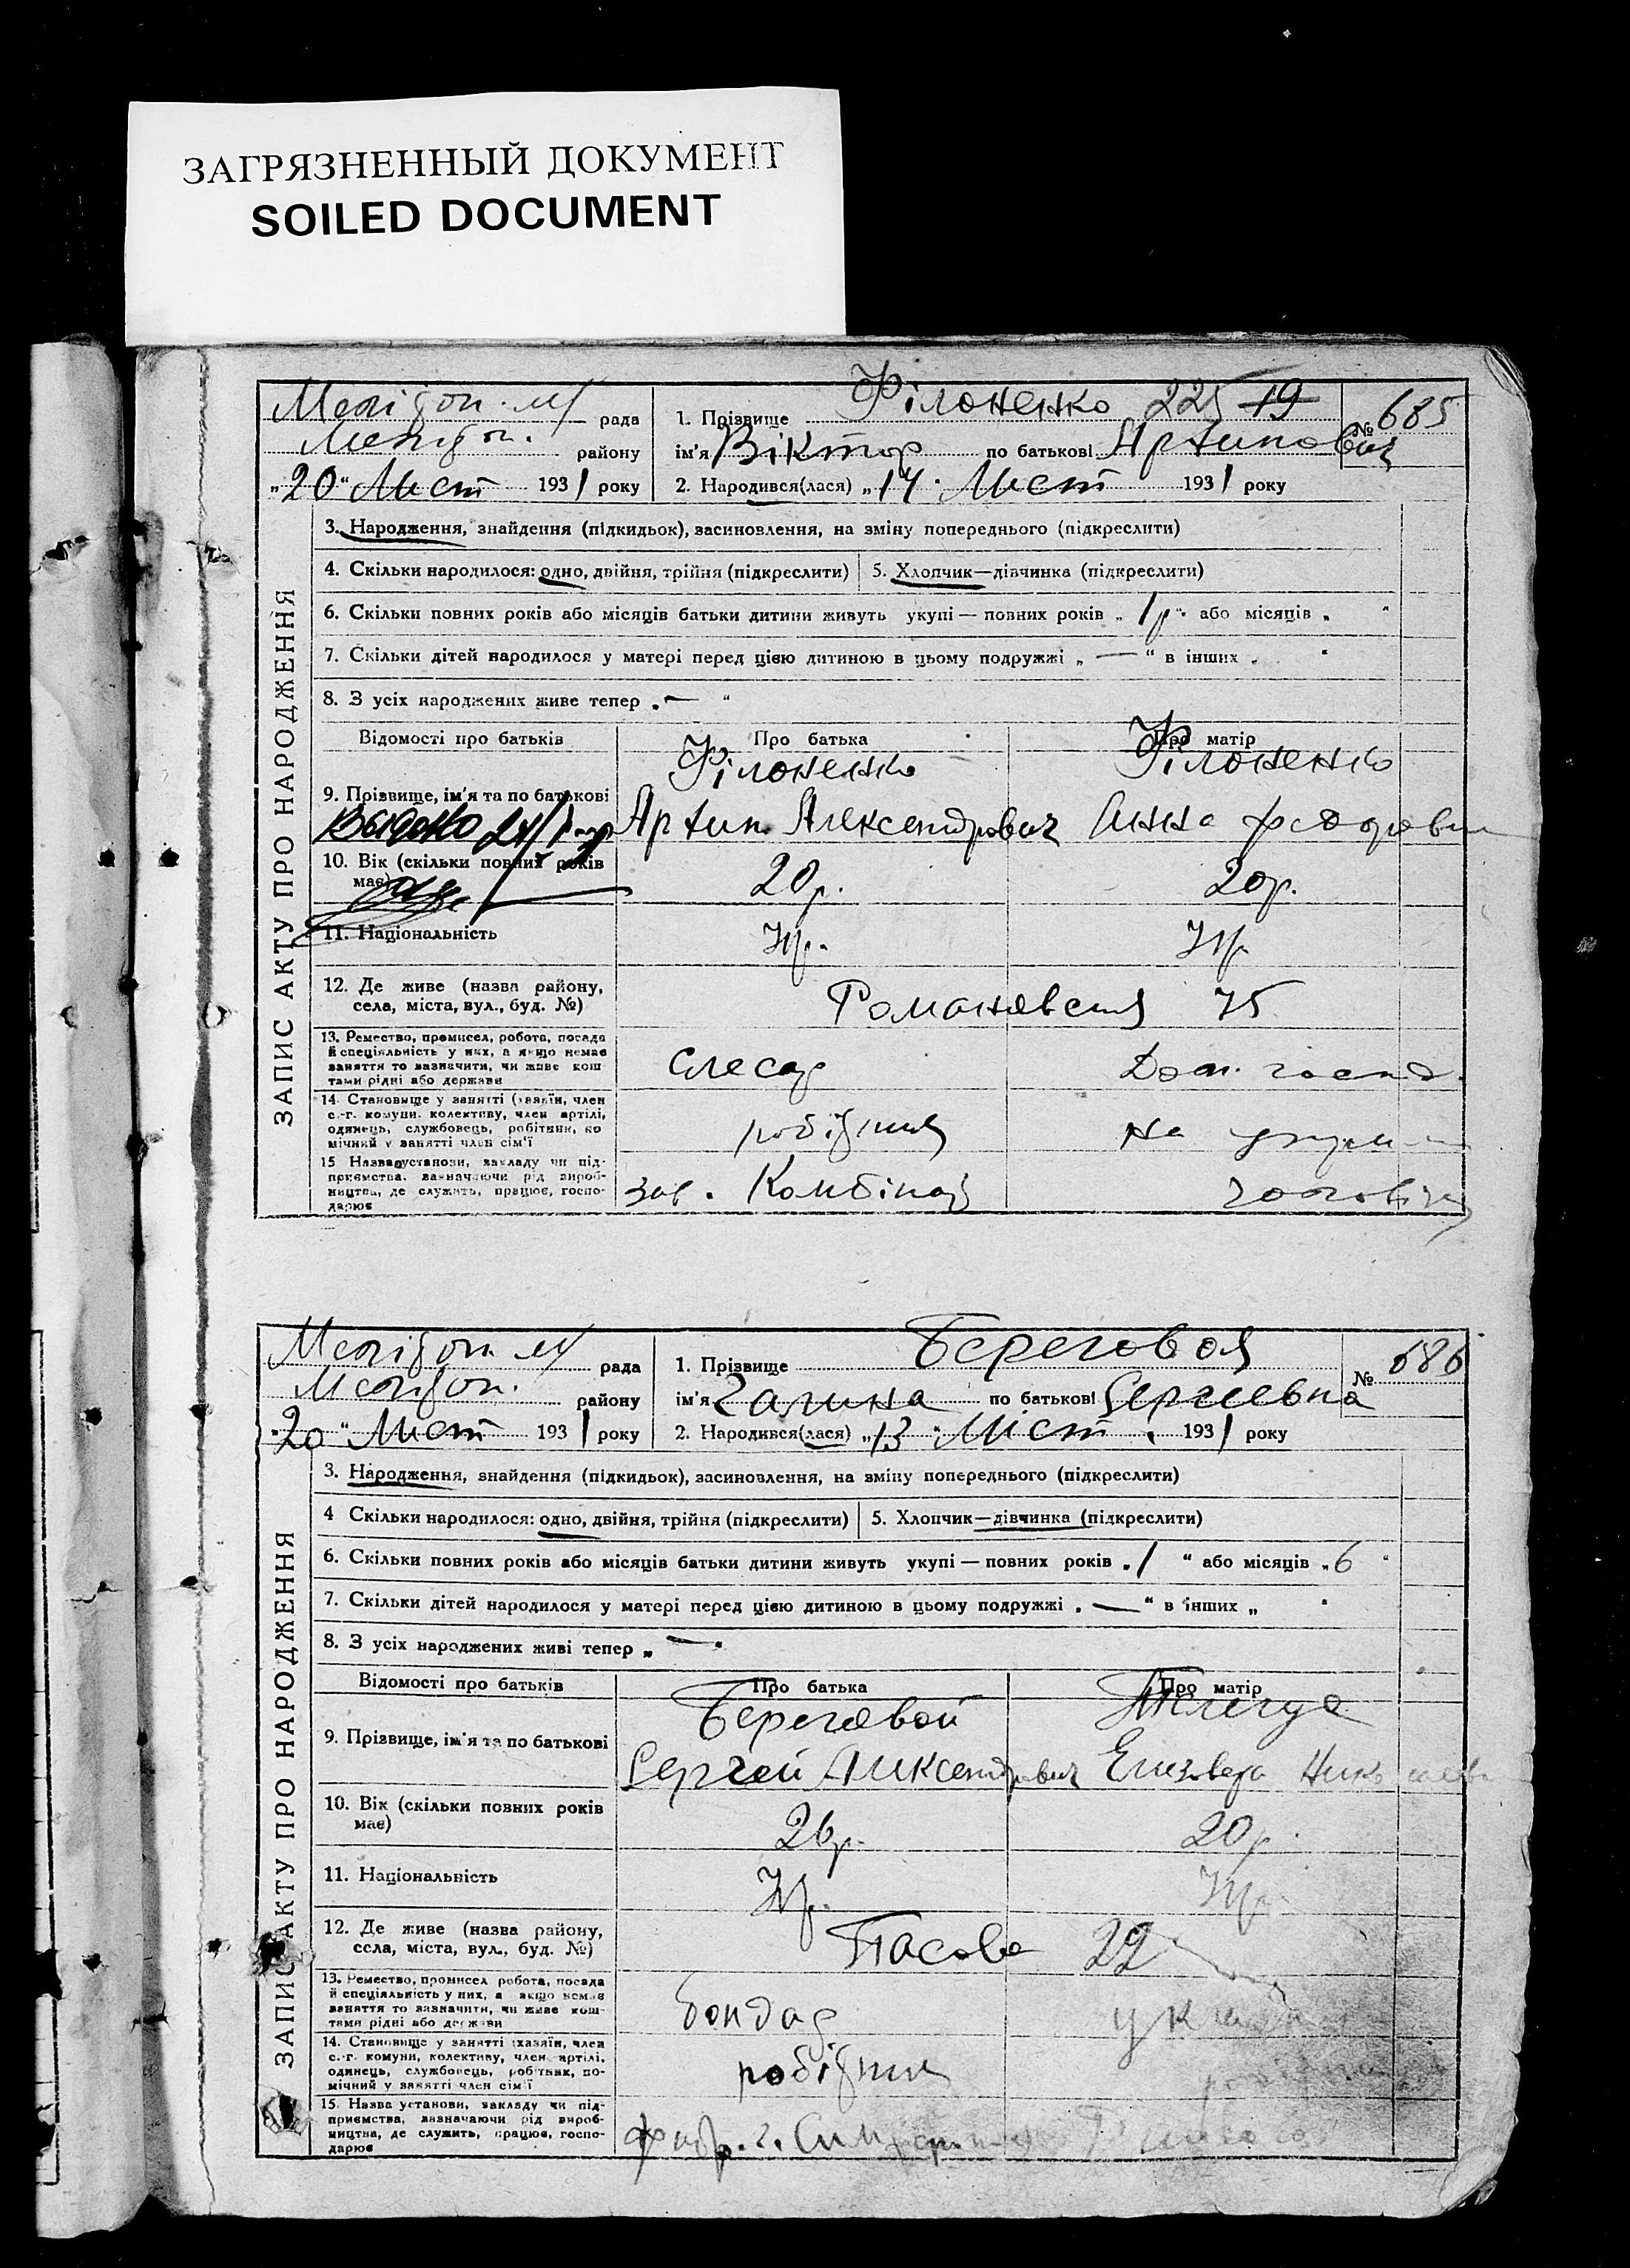 ЗАГРЯЗНЕННЫЙ ДОКУМЕНТ
SOILED DOCUMENT
ЗАПИС АКТУ ПРО НАРОДЖЕННЯ
рада 1. Прізвище Філоненко 225 19 № 685
району ім'я Віктор по батькові
„20“ Лист 1931 року 2. Народився(лася) „14“ Лист 1931 року
3. Народження, знайдення (підкидьок), засиновлення, на зміну попереднього (підкреслити)
4. Скільки народилося: одно, двійня, трійня (підкреслити) 5. Хлопчик—дівчинка (підкреслити)
6. Скільки повних років або місяців батьки дитини живуть укупі — повних років „1р“ або місяців „ “
7. Скільки дітей народилося у матері перед цією дитиною в цьому подружжі „—“ в інших „ “
8. З усіх народжених живе тепер „—“
Відомості про батьків Про батька Про матір
Філоненко Філоненко
9. Прізвище, ім'я та по батькові
Александрович Анна
10. Вік (скільки повних років має) 20р. 20р.
11. Національність Укр. Укр.
12. Де живе (назва району, села, міста, вул., буд. №) 75
13. Ремество, промисел, робота, посада
й спеціяльність у них, а якщо немає
заняття то зазначити, чи живе кош
тами рідні або держави
Слесар Дом. госпд.
14. Становище у занятті (хазяїн, член
с.-г. комуни, колективу, член артілі,
одинець, службовець, робітник, по
мічний у занятті член сім'ї
робітник на
15 Назва установи, закладу чи під-
приємства, зазначаючи рід вироб-
ництва, де служить, працює, госпо-
дарює
зав. Комбінат чоловіка
ЗАПИС АКТУ ПРО НАРОДЖЕННЯ
рада 1. Прізвище Береговая № 686
району ім'я Галина по батькові Сергиевна
„20“ Лист 1931 року 2. Народився(лася) „13“ Ліст. 1931 року
3. Народження, знайдення (підкидьок), засиновлення, на зміну попереднього (підкреслити)
4 Скільки народилося: одно, двійня, трійня (підкреслити) 5. Хлопчик—дівчинка (підкреслити)
6. Скільки повних років або місяців батьки дитини живуть укупі — повних років „1 “ або місяців „6 “
7. Скільки дітей народилося у матері перед цією дитиною в цьому подружжі „—“ в інших „ “
8. З усіх народжених живі тепер „—“
Відомості про батьків Про батька Про матір
Береговой
9. Прізвище, ім'я та по батькові
Сергей Александрович
10. Вік (скільки повних років має) 26р. 20р.
11. Національність Укр. Укр.
12. Де живе (назва району, села, міста, вул., буд. №) 22
13. Ремество, промисел робота, посада
й спеціяльність у них, а якщо немає
заняття то зазначити, чи живе кош-
тами рідні або держави
бондар
14. Становище у занятті (хазяїн, член
с.-г. комуни, колективу, член артілі,
одинець, службовець, робітник, по-
мічний у занятті член сім'ї
робітник
15. Назва установи, закладу чи під-
приємства, зазначаючи рід вироб-
ництва, де служить, працює, госпо-
дарює